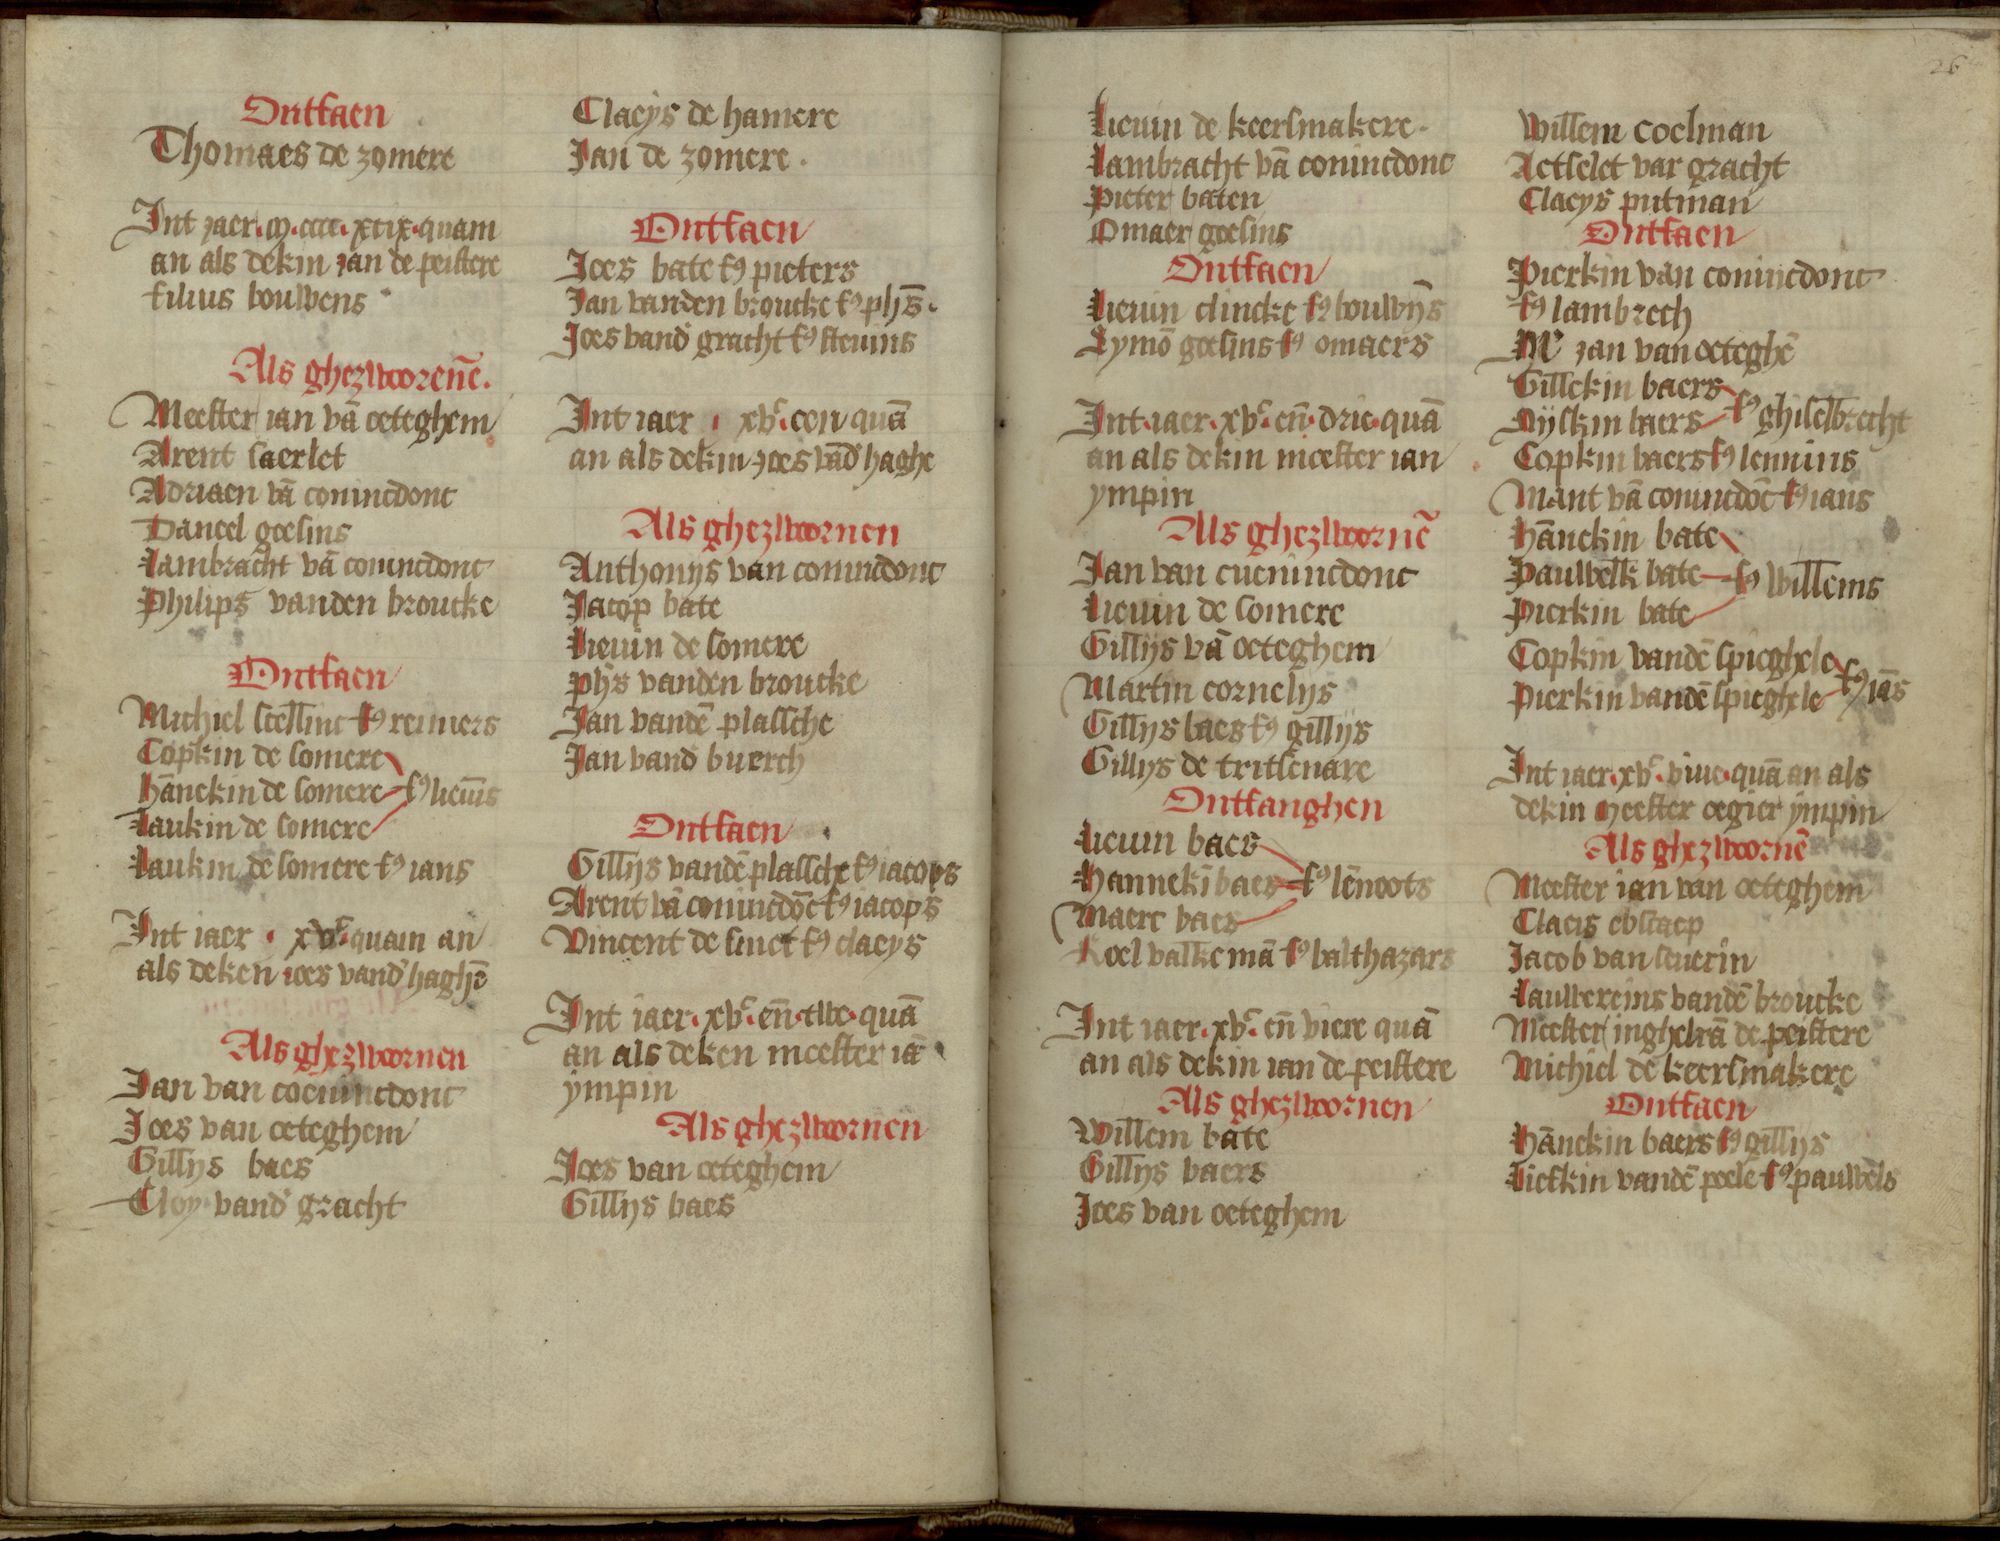 Ontfaen
Thomaes de zomere
Int jaer m cccc xcix quam
an als dekin jan de peistere
filius bouwens
Als ghezwoorenē
Meester ian vā oeteghem
Arent saerlet
Adriaen vā conincdonc
Daneel goesins
Lambracht vā conincdonc
Philips vanden broucke
Ontfaen
Michiel scellinc fꝰ reiniers
Copkin de somere
Hānekin de somere fꝰ lieuīs
Laukin de somere
Laukin de somere fꝰ ians
Int iaer xvᶜ quam an
als deken ioes vandʼ haghē
Als ghezwoornen
Jan van coenincdonc
Joes van oeteghem
Gillys baes
Cloy vandʼ gracht
Claeys de hamere
Jan de zomere
Ontfaen
Joes bate fꝰ pieters
Jan vanden broucke fꝰ phs̄
Joes vandʼ gracht fꝰ steuins
Int iaer xvᶜ een quā
an als dekin joes vādʼ haghe
Als ghezwoornen
Anthonijs van conincdonc
Jacop bate
Lieuin de somere
phs̄ vanden broucke
Jan vandē plassche
Jan vandʼ buerch
Ontfaen
Gillijs vandē plassche fꝰ iacops
Arent vā conincdōc fꝰ iacops
Vincent de smet fꝰ claeys
Int iaer xvᶜ eñ twe quā
an als deken meester iā
ympin
Als ghezwoornen
Joes van oeteghem
Gillys baes
26
Lieuin de keersmakere
Lambracht vā conincdonc
Pieter baten
Omaer goesins
Ontfaen
Lieuin clincke fꝰ bouwȳs
Symō goesins fꝰ omaers
Int iaer xvᶜ eñ drie quā
an als dekin meester ian
ympin
Als ghezwoornē
Jan van cuenincdonc
Lieuin de somere
Gillijs vā oeteghem
Martin cornelijs
Gillys baes fꝰ gillijs
Gillys de tritsenare
Ontfanghen
Lieuin baes
Hannekī baes fꝰ lēnoots
Maerc baes
Roel valkemā fꝰ balthazars
Int iaer xvᶜ eñ viere quā
an als dekin ian de peistere
Als ghezwoornen
Willem bate
Gillys baers
Joes van oeteghem
Willem coelman
Aetselet var gracht
Claeys putman
Ontfaen
Pierkin van conincdonc
fꝰ lambrech
Mʳ jan van oeteghē
Gillekin baers
Nijskin baers fꝰ ghiselbrecht
Copkin baers fꝰ lennins
Mant vā conincdōc fꝰ ians
Hānekin bate
Pauwelk bate fꝰ willems
Pierkin bate
Copkin vandē spieghele
Pierkin vandē spieghele fꝰ iās
Int iaer xvᶜ viue quā an als
dekin meester oegier ympin
Als ghezwoornē
Meester ian van oeteghem
Claeis ebscaep
Jacob van seuerin
Lauwereins vandē broucke
Meester inghelrā de peistere
Michiel de keersmakere
Ontfaen
Hānekin baers fꝰ gillijs
Liefkin vandē poele fꝰ pauwels